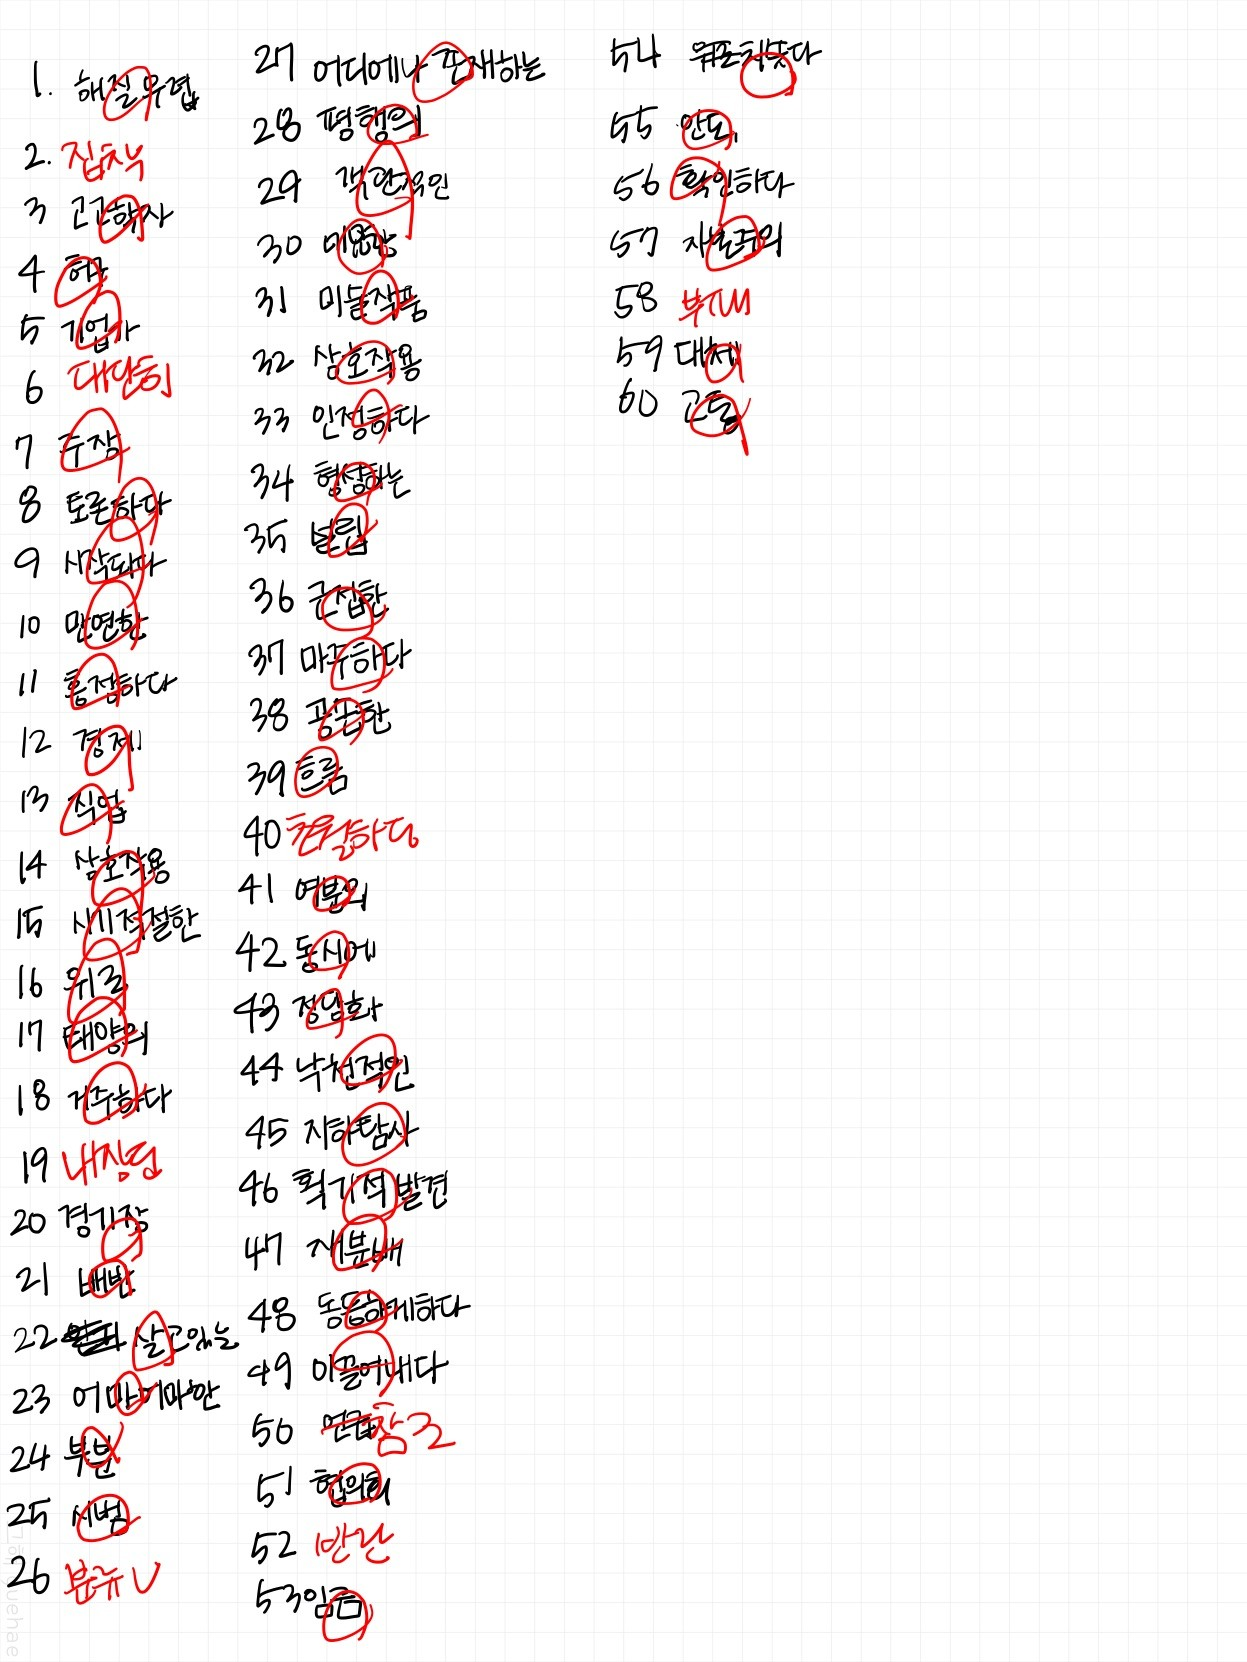 1. 해질무렵
2. 집착
3 고고학자
4 허구
5 기업가
6 대단히
7 주장
8 토론하다
9 시작되다
10 만연한
11 흥정하다
12 경제
13 직업
14 상호작용
15 시기적절한
16 위로
17 태양의
18 거주하다
19 내장된
20 경기장
21 배반
22 살고있는
23 어마어마한
24 부분
25 시범
26 분류
27 어디에나 존재하는
28 평행의
29 객관적인
30 미용상
31 미술작품
32 상호작용
33 인정하다
34 형성하는
35 널림
36 근접한
37 마주하다
38 공손한
39 흐름
40
41 여분의
42 동시에
43 정당화
44 낙천적인
45 지하탐사
46 획기적 발견
47 재분배
48 동등하게하다
49 이끌어내다
50 언급 참고
51 협의회
52 반란
53 임금
54
55 안도
56 확인하다
57 자본주의
58 부채
59 대체
60